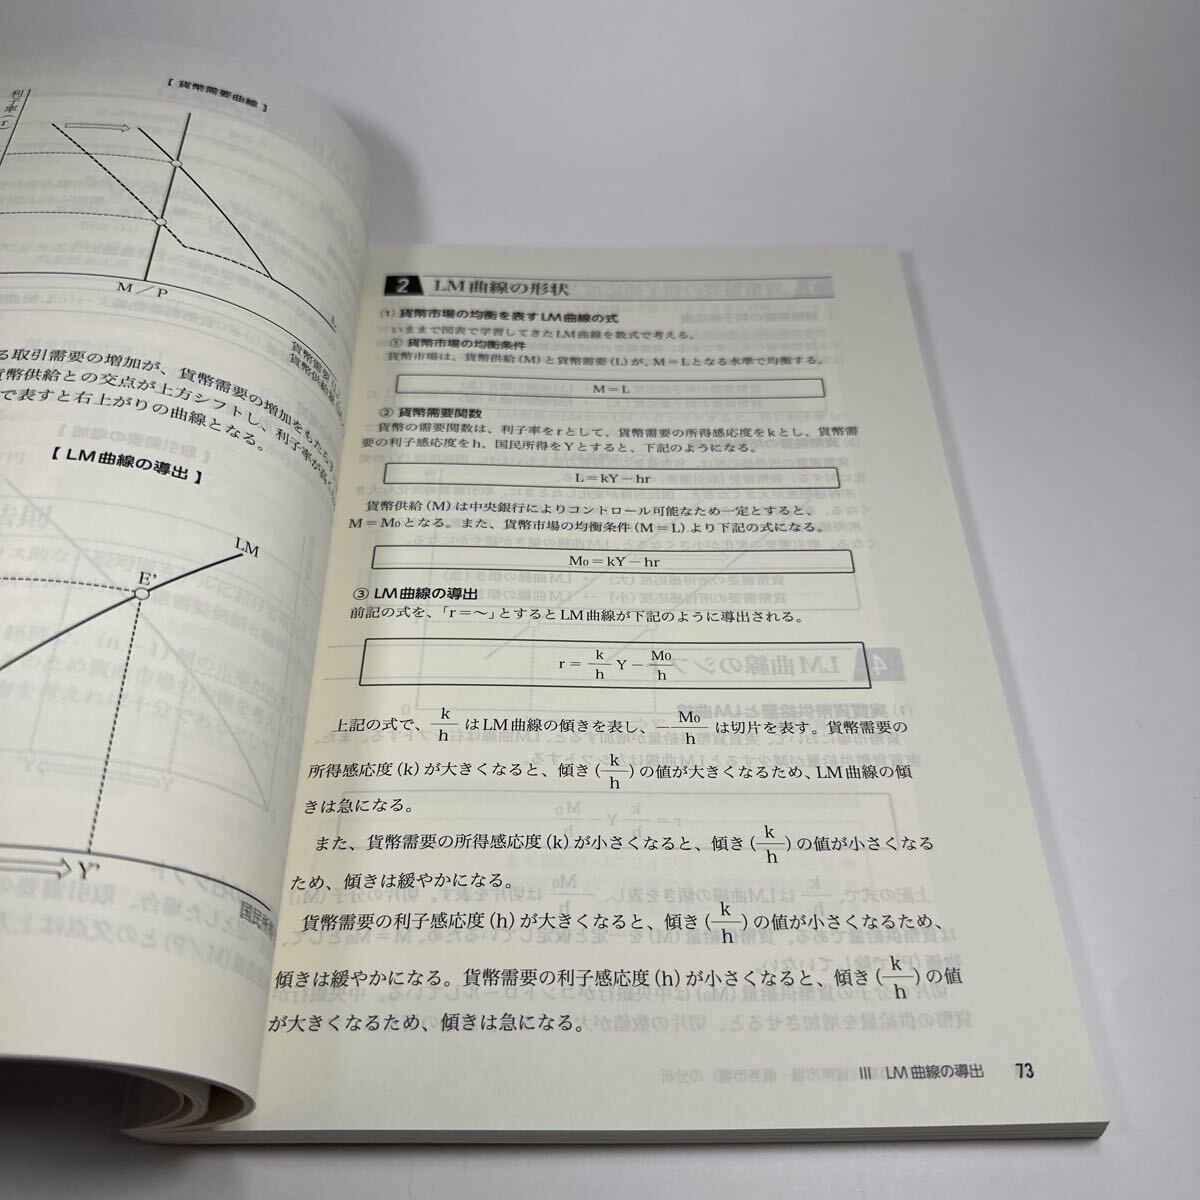 【 貨幣需要曲線 】
利子率（r）
M／P
L
貨幣需要
貨幣供給
る取引需要の増加が、貨幣需要の増加をもたら
貨幣供給との交点が上方シフトし、利子率が
で表すと右上がりの曲線となる。
【 LM曲線の導出 】
LM
E'
Y'
2 LM曲線の形状
(1) 貨幣市場の均衡を表すLM曲線の式
いままで図表で学習してきたLM曲線を数式で考える。
① 貨幣市場の均衡条件
貨幣市場は、貨幣供給(M)と貨幣需要(L)が、M＝Lとなる水準で均衡する。
M＝L
② 貨幣需要関数
貨幣の需要関数は、利子率をrとして、貨幣需要の所得感応度をkとし、貨幣需
要の利子感応度をh、国民所得をYとすると、下記のようになる。
L＝kY－hr
貨幣供給(M)は中央銀行によりコントロール可能なため一定とすると、
M＝M₀となる。また、貨幣市場の均衡条件(M＝L)より下記の式になる。
M₀＝kY－hr
③ LM曲線の導出
前記の式を、「r＝～」とするとLM曲線が下記のように導出される。
r＝k/h Y－M₀/h
上記の式で、k/hはLM曲線の傾きを表し、－M₀/hは切片を表す。貨幣需要の
所得感応度(k)が大きくなると、傾き(k/h)の値が大きくなるため、LM曲線の傾
きは急になる。
また、貨幣需要の所得感応度(k)が小さくなると、傾き(k/h)の値が小さくなる
ため、傾きは緩やかになる。
貨幣需要の利子感応度(h)が大きくなると、傾き(k/h)の値が小さくなるため、
傾きは緩やかになる。貨幣需要の利子感応度(h)が小さくなると、傾き(k/h)の値
が大きくなるため、傾きは急になる。
III LM曲線の導出 73